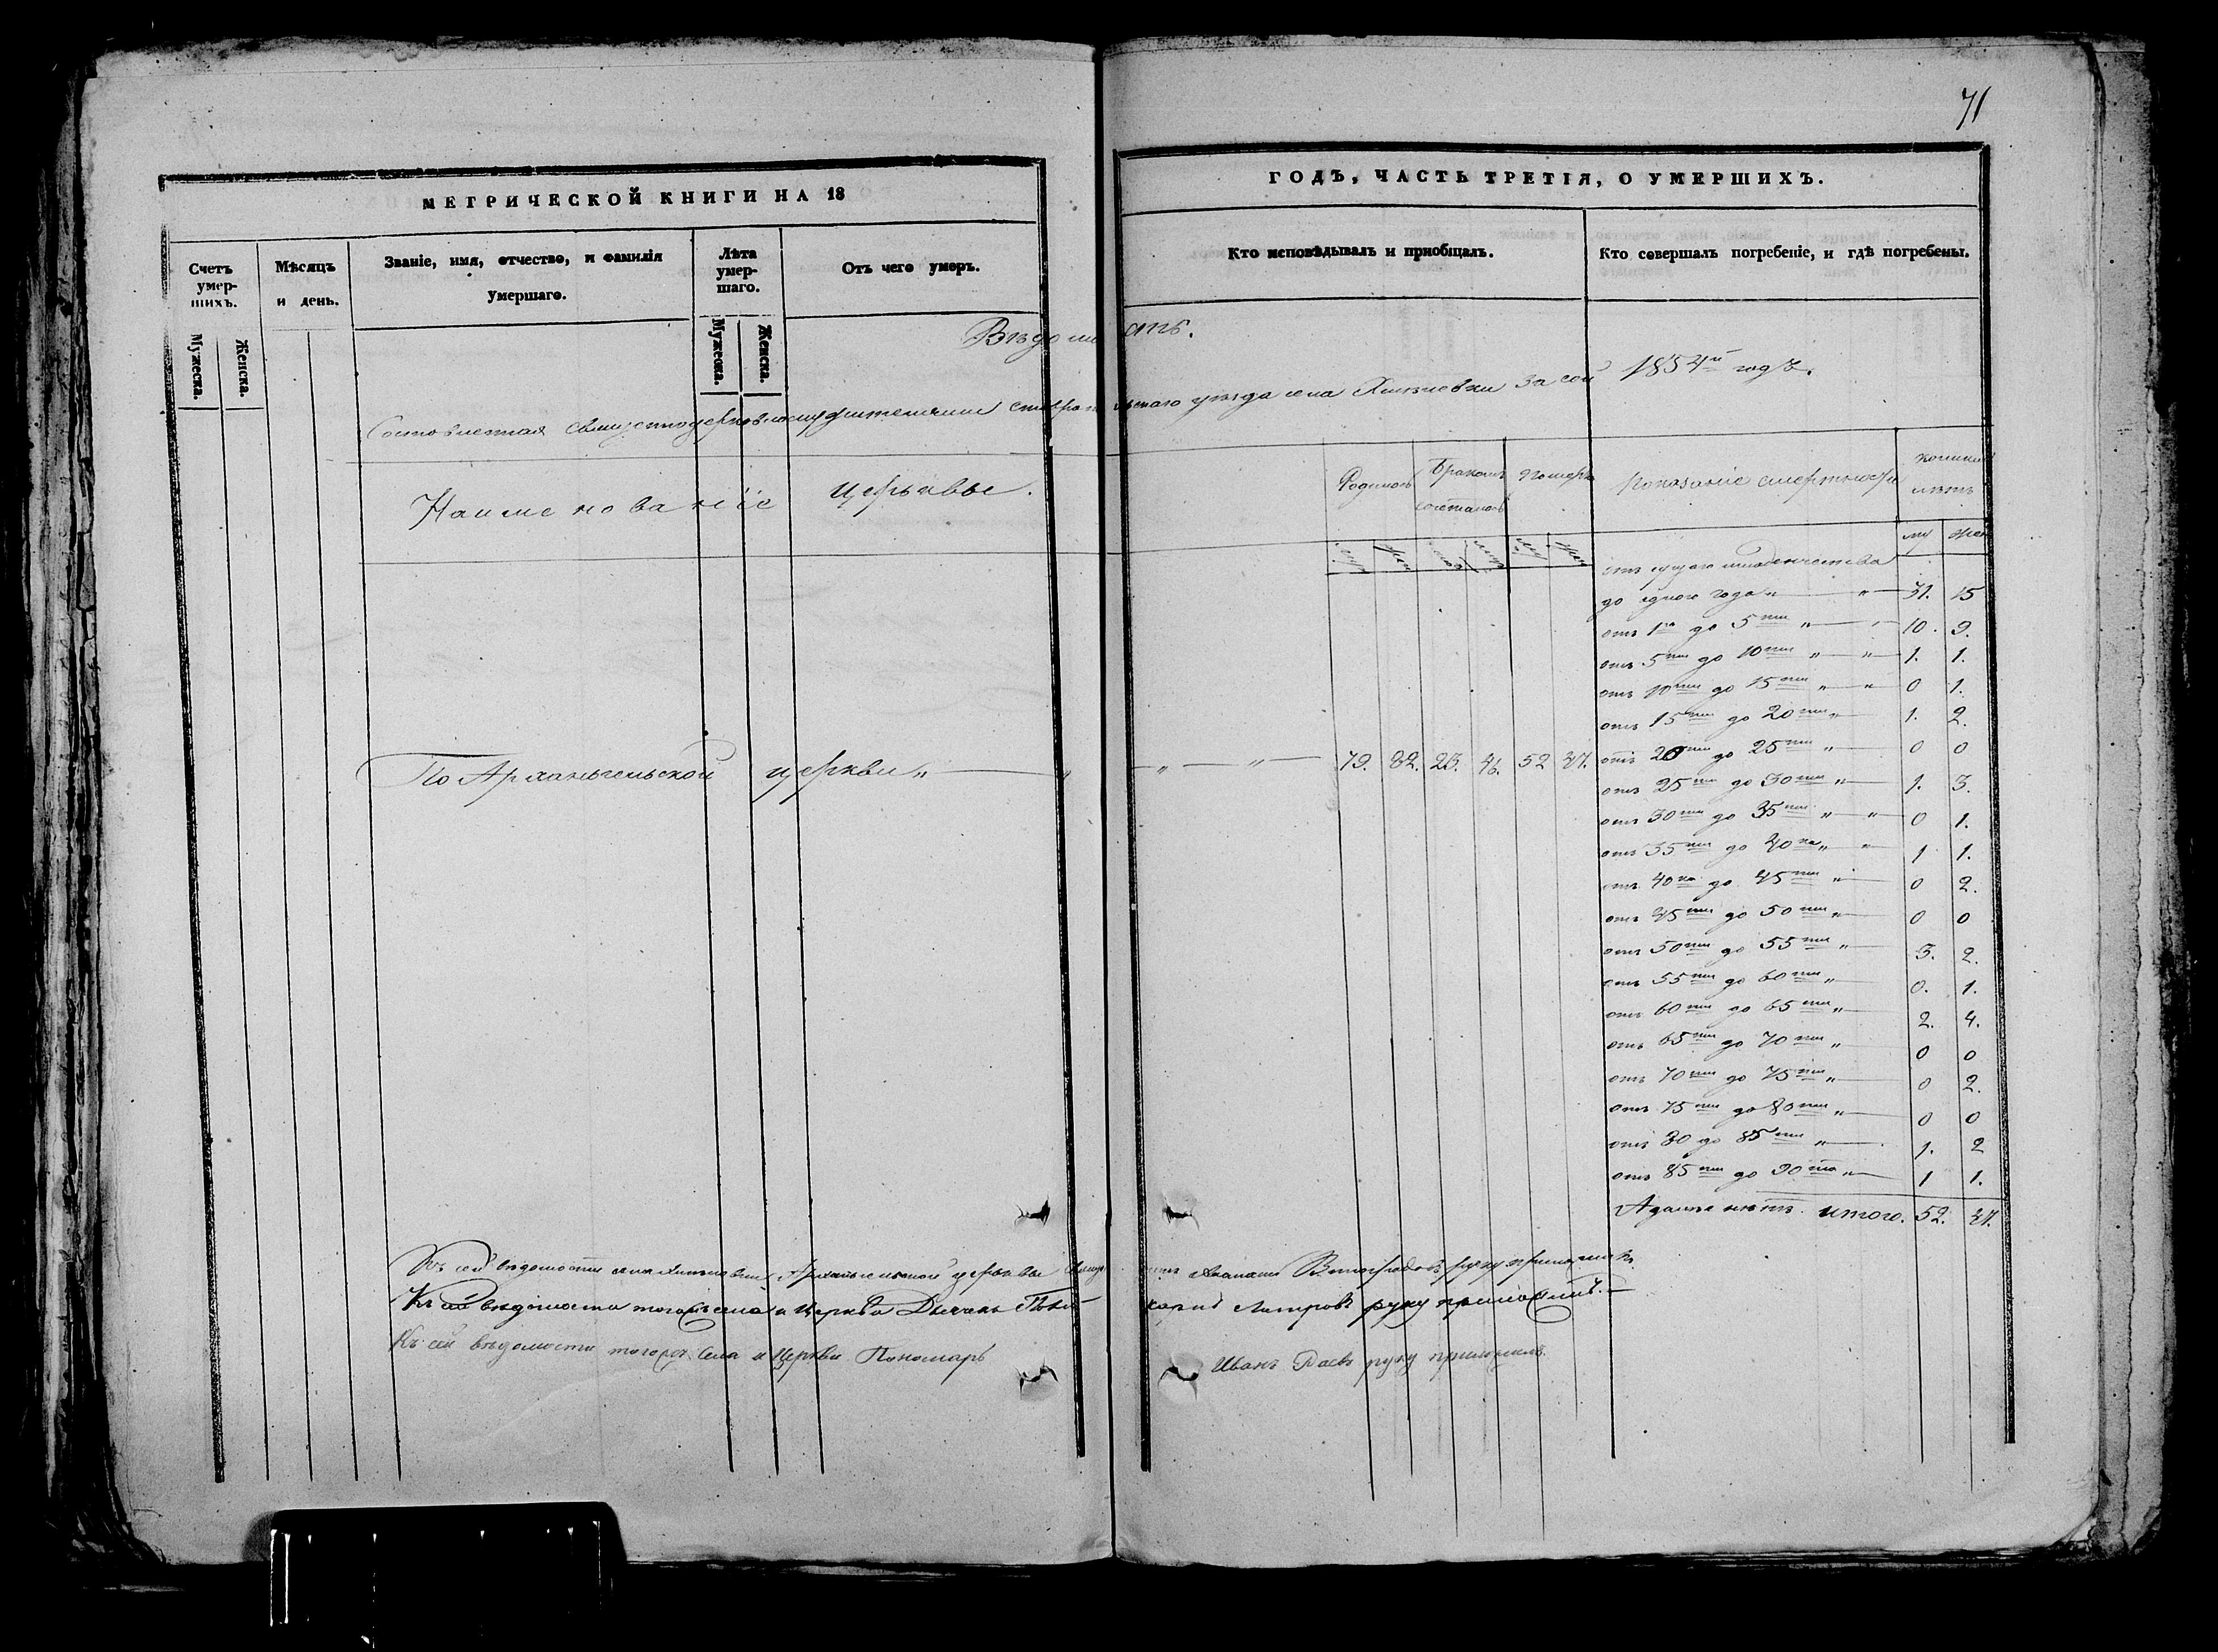 71
МЕТРИЧЕСКОЙ КНИГИ НА 18
ГОДЪ, ЧАСТЬ ТРЕТІЯ, О УМЕРШИХЪ.
Счетъ умершихъ.
Мужеска.
Женска.
Мѣсяцъ и день.
Званіе, имя, отчество, и фамилія умершаго.
Лѣта умершаго.
Мужеска.
Женска.
Отъ чего умеръ.
Кто исповѣдывалъ и пріобщалъ.
Кто совершалъ погребеніе, и гдѣ погребены.
Вѣдомость.
Составленная священноцерковнослужителями ставропольскаго уѣзда села за сей 1854й годъ.
Наименованіе церквье.
Родилось
Бракомъ сочеталось
Померло
показаніе смертности
колико лѣтъ
му жен
отъ сущаго младенчества
до одного года „ „ 31. 15
отъ 1го до 5ти „ 10. 9.
отъ 5ти до 10ти „ „ 1. 1.
отъ 10ти до 15ти „ „ 0 1.
отъ 15ти до 20ти „ 1. 2.
отъ 20ти до 25ти „ 0 0
отъ 25ти до 30ти „ 1. 3.
отъ 30ти до 35ти „ „ 0 1.
отъ 35ти до 40ка „ „ 1 1.
отъ 40ка до 45ти „ 0 2.
отъ 45ти до 50ти „ 0 0
отъ 50ти до 55ти „ 3. 2.
отъ 55ти до 60ти „ 0. 1.
отъ 60ти до 65ти „ 2. 4.
отъ 65ти до 70ти „ 0 0
отъ 70ти до 75ти „ 0 2.
отъ 75ти до 80ти „ 0 0
отъ 80 до 85ти „ 1. 2
отъ 85ти до 90та „ 1 1.
Адалѣе нѣтъ. итого. 52. 47.
По Архангельской церкви „ „ „ „ 79. 82. 52 47.
Къ сей вѣдомости села Архангельской церкви Виноградовъ руку приложилъ
Къ сей вѣдомости тогожъ села и Церкви руку приложилъ.
Къ сей вѣдомости тогожъ Села и Церкви Пономарь Иванъ руку приложилъ.